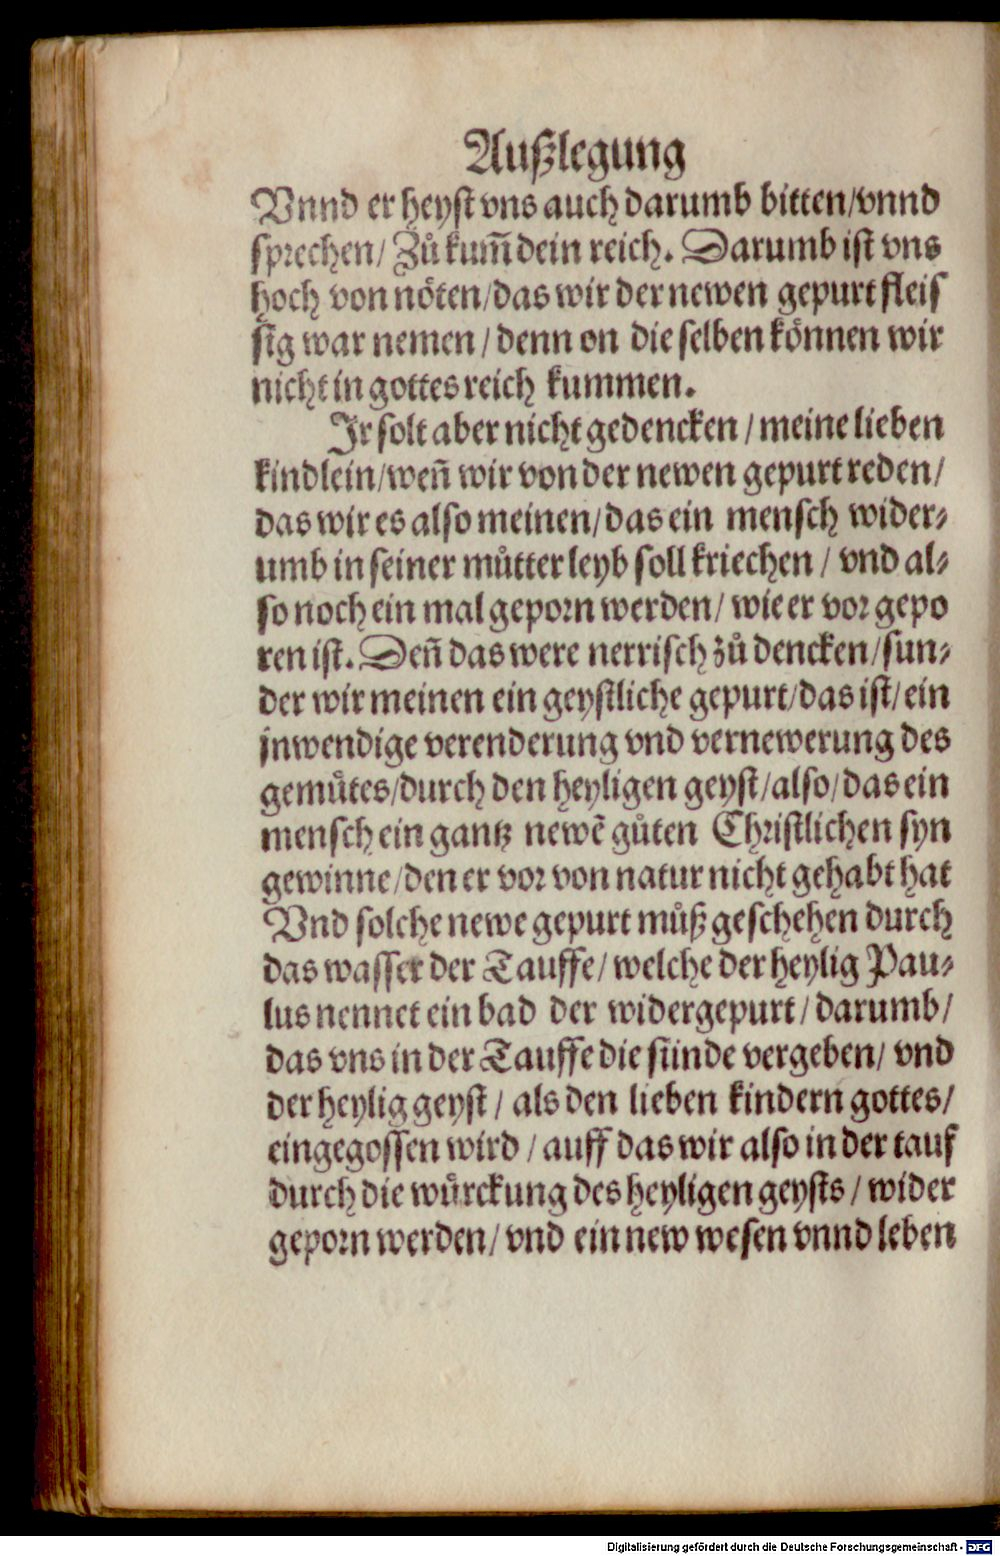 Außlegung
Vnnd er heyst vns auch darumb bitten/vnnd
sprechen/ Zů kum̃ dein reich. Darumb ist vns
hoch von nöten/das wir der newen gepurt fleis
sig war nemen/denn on die selben können wir
nicht in gottes reich kummen.
Jr solt aber nicht gedencken/meine lieben
kindlein/weñ wir von der newen gepurt reden/
das wir es also meinen/das ein mensch wider⸗
umb in seiner můtter leyb soll kriechen/ vnd al⸗
so noch ein mal geporn werden/ wie er vor gepo
ren ist. Deñ das were nerrisch zů dencken/sun⸗
der wir meinen ein geystliche gepurt/das ist/ein
jnwendige verenderung vnd vernewerung des
gemůtes/durch den heyligen geyst/also/das ein
mensch ein gantz newẽ gůten Christlichen syn
gewinne/den er vor von natur nicht gehabt hat
Vnd solche newe gepurt můß geschehen durch
das wasser der Tauffe/welche der heylig Pau⸗
lus nennet ein bad der widergepurt/darumb/
das vns in der Tauffe die sünde vergeben/ vnd
der heylig geyst/ als den lieben kindern gottes/
eingegossen wird/auff das wir also in der tauf
durch die würckung des heyligen geysts/wider
geporn werden/vnd ein new wesen vnnd leben
Digitalisierung gefördert durch die Deutsche Forschungsgemeinschaft - DFG